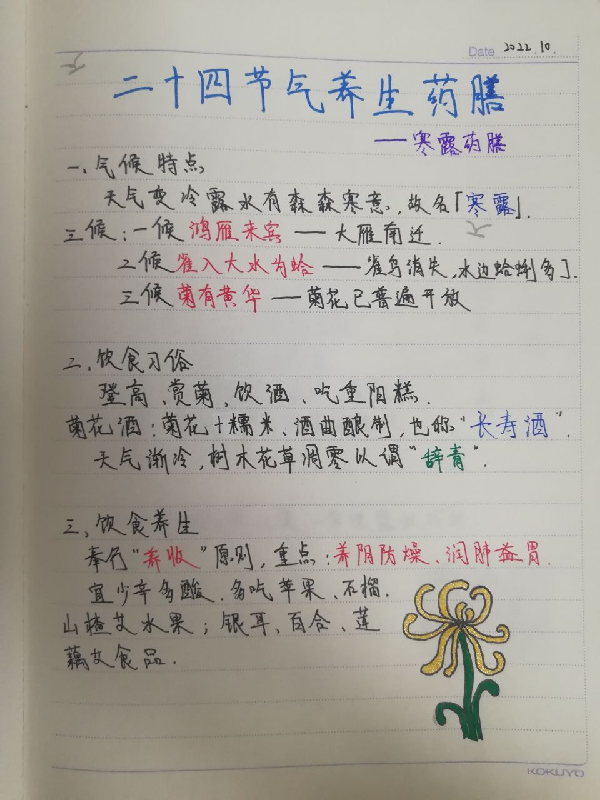 Date 2022.10.
二十四节气养生药膳
——寒露药膳
一、气候特点
天气变冷露水有森森寒意,故名「寒露」.
三候:一候鸿雁来宾——大雁南迁.
二候雀入大水为蛤——雀鸟消失,水边蛤蜊多了.
三候菊有黄华——菊花已普遍开放
二、饮食习俗
登高、赏菊、饮酒、吃重阳糕.
菊花酒:菊花+糯米、酒曲酿制,也称"长寿酒".
天气渐冷,树木花草凋零以谓"辞青".
三、饮食养生
奉行"养收"原则,重点:养阴防燥、润肺益胃.
宜少辛多酸、多吃苹果、石榴.
山楂等水果;银耳、百合、莲
藕等食品.
KOKUYO